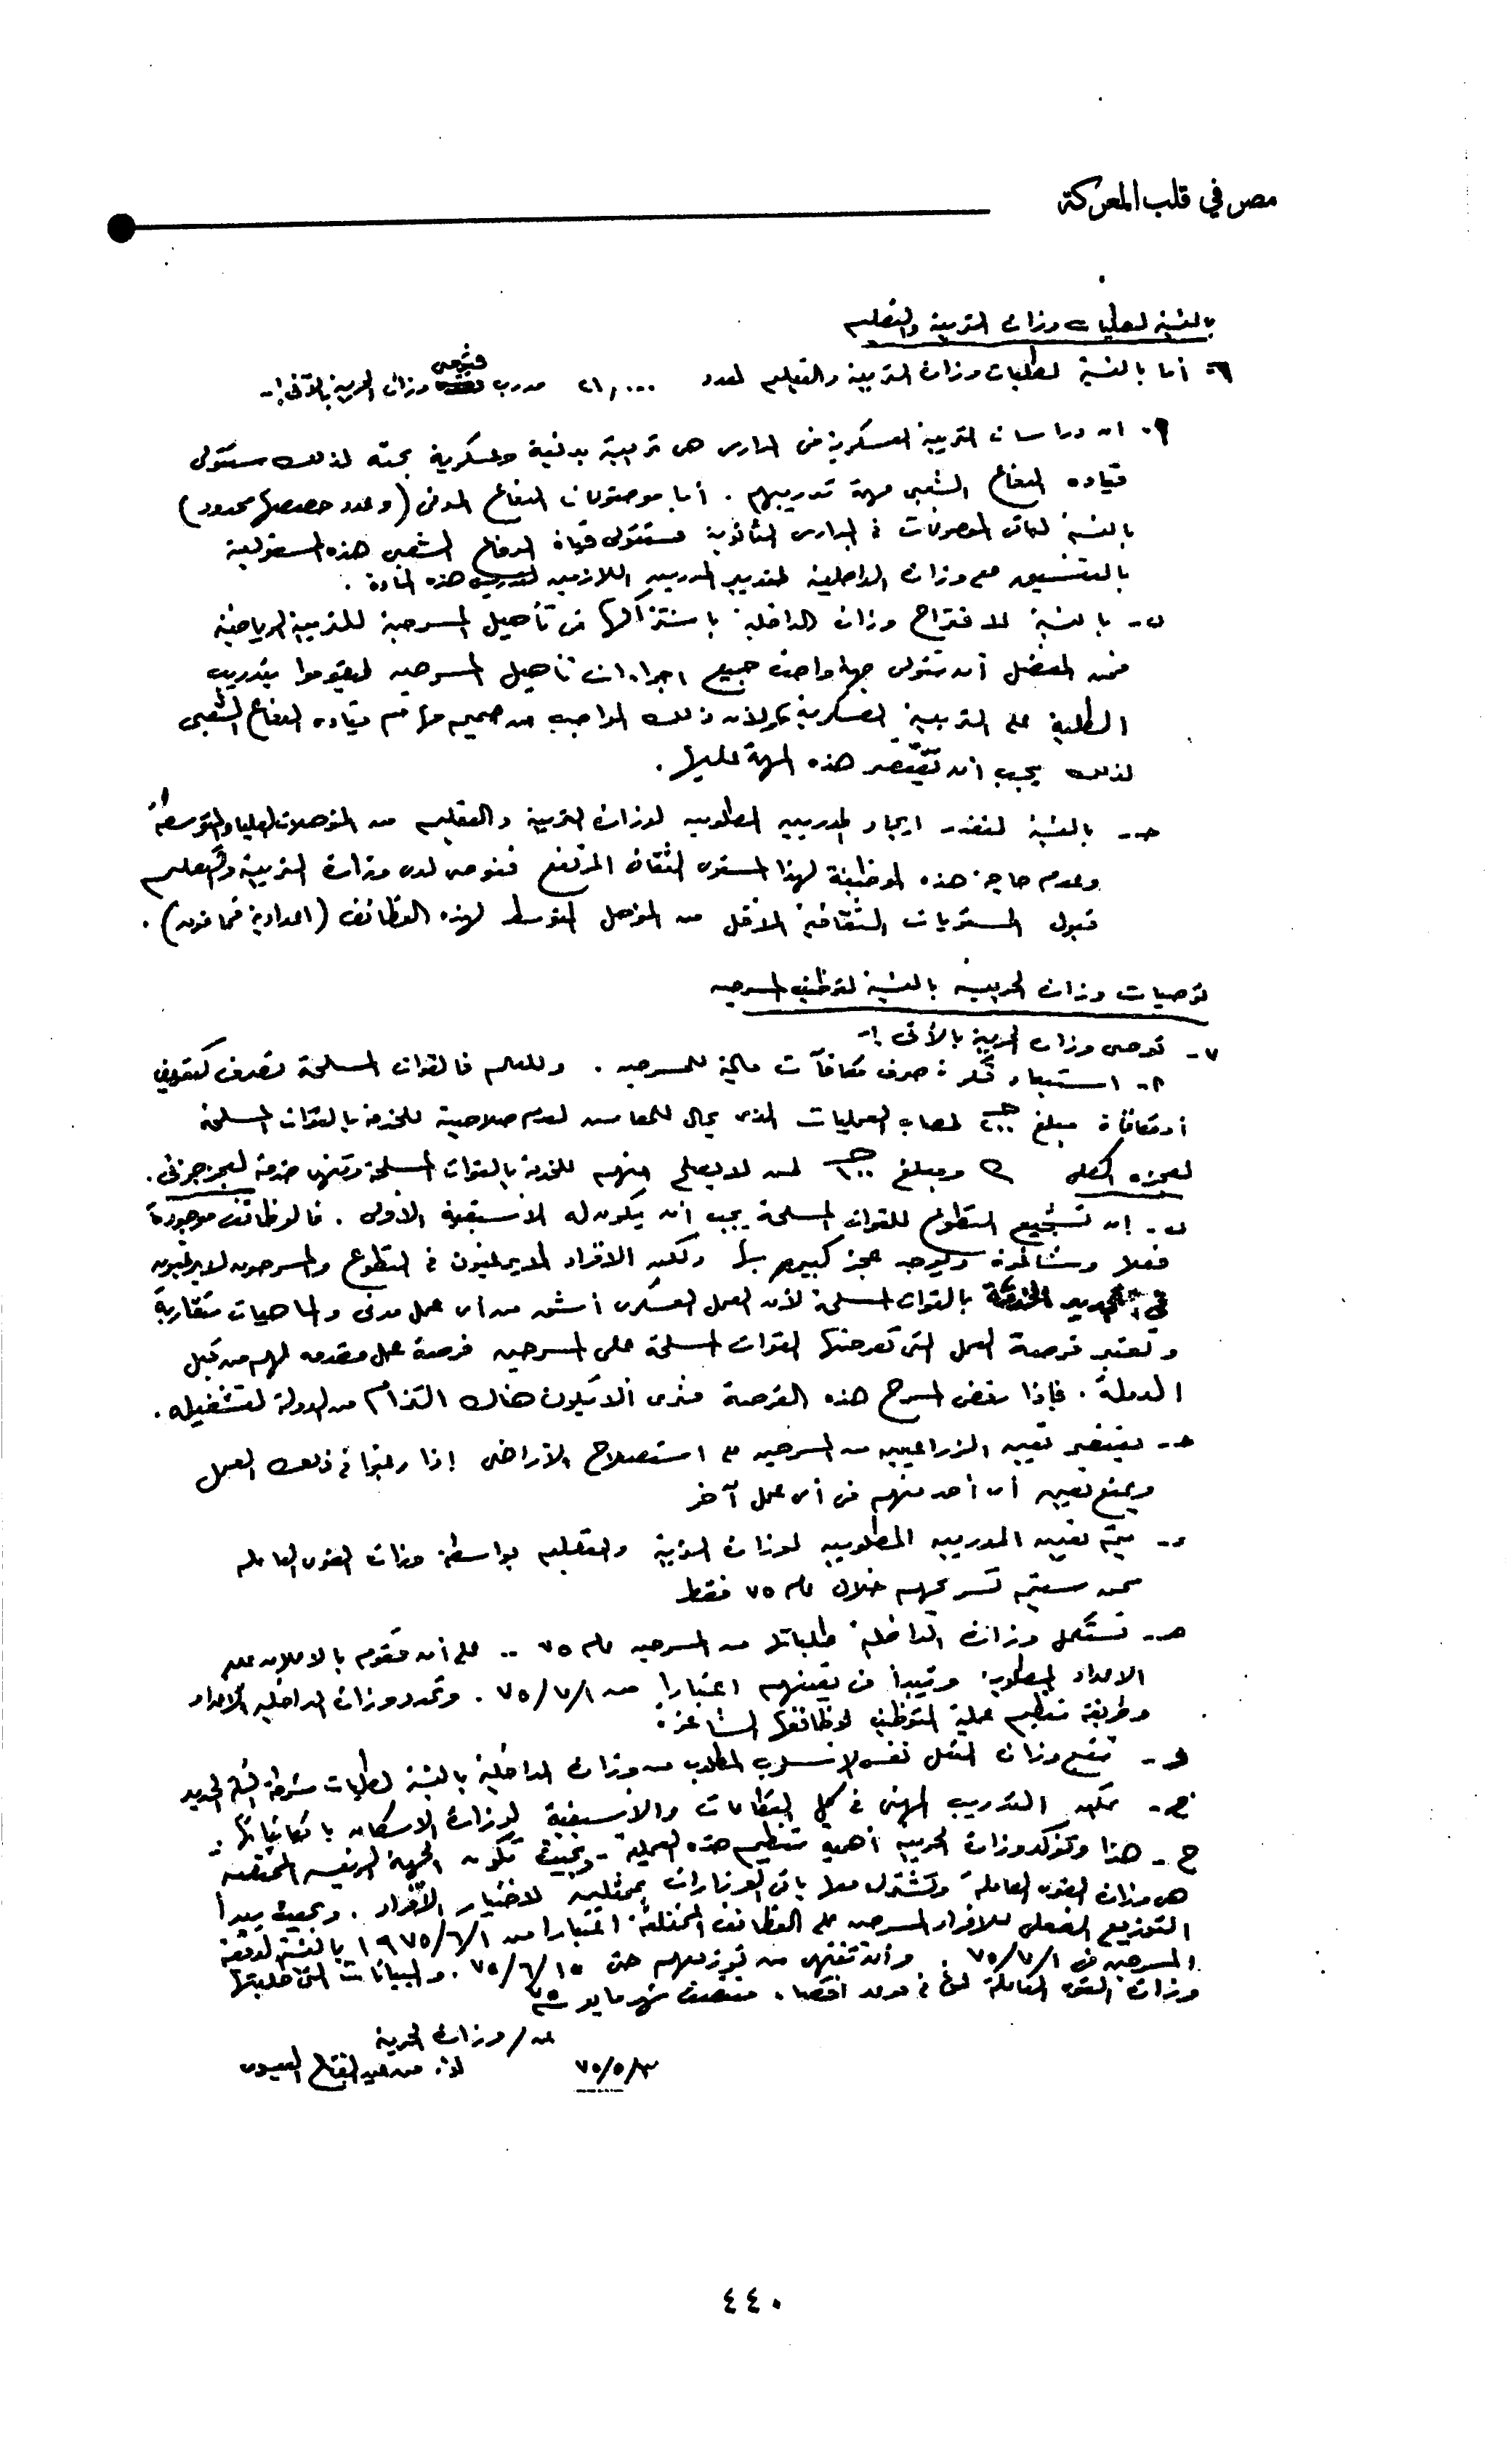 مصر في قلب المعركة
بالنسبة لطلبات وزارة التربية والتعليم
٦- أما بالنسبة لطلبات وزارة التربية والتعليم لعدد ٢١,٠٠٠ مدرب فتوصى وزارة الحربية بالآتى :-
٩- ان دراسات التربية العسكرية فى المدارس هى تربية بدنية وعسكرية بحته لذلك ستتولى
قيادة الدفاع الشعبى مهمة تدريبهم . أما موضوعات الدفاع المدنى (وعدد حصصها محدود)
بالنسبة لباقى الموضوعات فى المدارس الثانوية فستتولى قيادة الدفاع الشعبى هذه المسئولية
بالتنسيق مع وزارة الداخلية لتدريب المدربين اللازمين لتدريس هذه المادة .
ب- بالنسبة لاقتراح وزارة الداخلية باشتراكها فى تأهيل المسرحين للتربية الرياضية
فمن المفضل أن تتولى جهة واحدة جميع اجراءات تأهيل المسرحين ليقوموا بتدريب
الطلبة على التربية العسكرية ولأن ذلك الواجب من صميم مهام قيادة الدفاع الشعبى
لذلك يجب أن تقتصر هذه المهمة عليها .
حـ- بالنسبة لتعذر ايجاد المدربين المطلوبين لوزارة التربية والتعليم من المؤهلات العليا والمتوسطة
وعدم حاجة هذه الوظيفة لهذا المستوى الثقافى المرتفع فنوصى لدى وزارة التربية والتعليم
قبول المستويات الثقافية الأقل من المؤهل المتوسط لهذه الوظائف (اعدادية فما فوق) .
توصيات وزارة الحربية بالنسبة لتوظيف المسرحين
٧- توصى وزارة الحربية بالأتى :-
٩- استبعاد فكرة صرف مكافآت مالية للمسرحين . وللعلم فالقوات المسلحة تصرف كتعويض
أو مكافأة مبلغ لمصاب العمليات الذى يحال للمعاش لعدم صلاحيته للخدمة بالقوات المسلحة
لعجزه الكلى ومبلغ لمن لا يصلح منهم للخدمة بالقوات المسلحة وتنهى خدمته لعجز جزئى .
ب- إن تشجيع التطوع للقوات المسلحة يجب أن يكون له الأسبقية الأولى . فالوظائف موجودة
فعلا وشاغرة ويوجد عجز كبير بها ولكن الافراد لا يرغبون فى التطوع والمسرحون لا يرغبون
فى تجديد الخدمة بالقوات المسلحة لأن العمل العسكرى أشق من أى عمل مدنى والماهيات متقاربة
وتعتبر فرصة العمل التى تعرضها القوات المسلحة على المسرحين فرصة عمل مقدمه لهم من قبل
الدولة . فإذا رفض المسرح هذه الفرصة فنرى ألا يكون هناك التزام من الدولة لتشغيله .
حـ- يقتصر تعيين الزراعيين من المسرحين على استصلاح الأراضى إذا رغبوا فى ذلك العمل
ويمنع تعيين أى أحد منهم فى أى عمل آخر
د- يتم تعيين المدربين المطلوبين لوزارة التربية والتعليم بواسطة وزارة القوى العاملة
ممن سيتم تسريحهم خلال عام ٧٥ فقط
هـ- تستكمل وزارة الداخلية طلباتها من المسرحين عام ٧٥ .. على أن تقوم بالاعلان عن
الاعداد المطلوبة وتبدأ فى تعيينهم اعتبارا من ٧٥/٧/١ . وتحدد وزارة الداخلية الأعداد
وطريقة تنظيم عملية التوظيف لوظائفها الشاغرة .
و- تتبع وزارة النقل نفس الاسلوب المطلوب من وزارة الداخلية بالنسبة لطلبات شرطة السكة الحديد
يمكن التدريب المهنى فى كل القطاعات والأسبقية لوزارة الاسكان بامكانياتها .
ح- هذا وتؤكد وزارة الحربية أهمية تنظيم هذه العملية - وبحيث تكون الجهة الرئيسية المختصة
هى وزارة القوى العاملة وتشترك معها باقى الوزارات بممثلين لاختيار الأفراد . وبحيث يبدأ
التوزيع الفعلى للافراد المسرحين على الوظائف المختلفة اعتبارا من ١٩٧٥/٦/١ بالنسبة لدفعة
المسرحين فى ٧٥/٧/١ وأن تنتهى من توزيعهم حتى ٧٥/٦/١٥ . والبيانات التى طلبتها
وزارة القوى العاملة فى موعد أقصاه منتصف شهر مايو ٧٥
عن / وزارة الحربية
٧٥/٥/٣
٤٤٠